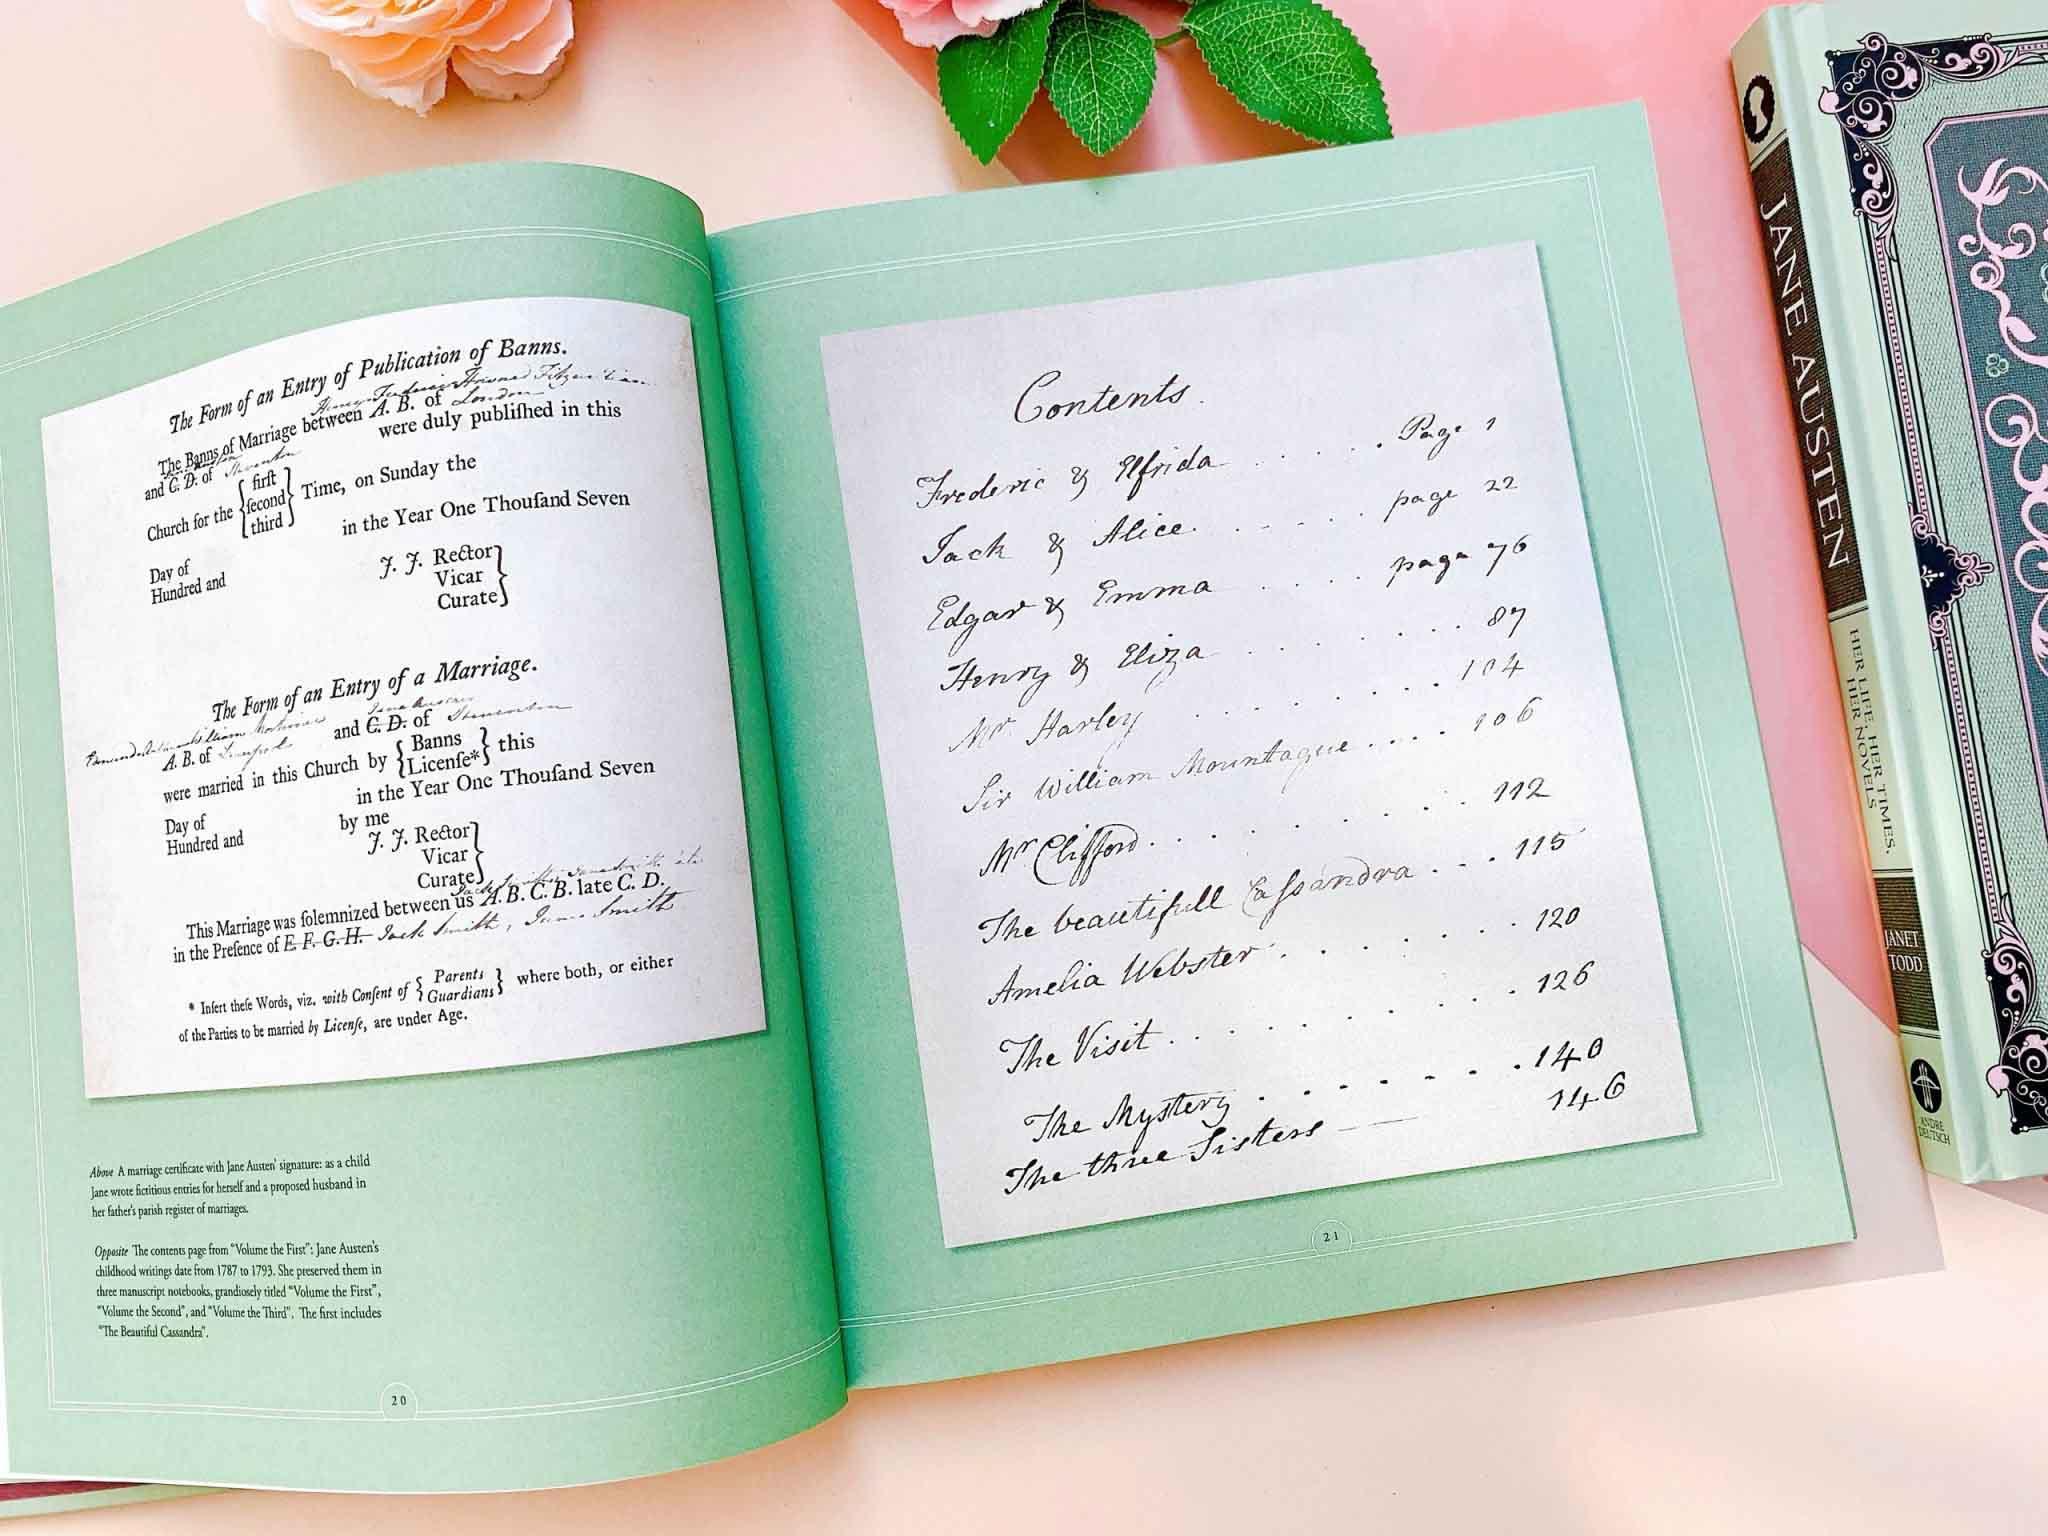 The Form of an Entry of Publication of Banns.
Henry Frederic Howard Fitzwilliam
The Banns of Marriage between A. B. of London
Jane Austen
and C. D. of Steventon were duly publiſhed in this
Church for the { firſt ſecond third } Time, on Sunday the
Day of in the Year One Thouſand Seven
Hundred and
J. J. Rector
Vicar
Curate
The Form of an Entry of a Marriage.
Edmund Arthur William Mortimer Jane Austen
A. B. of Liverpool and C. D. of Steventon
were married in this Church by { Banns Licenſe* } this
Day of in the Year One Thouſand Seven
Hundred and by me
J. J. Rector
Vicar
Curate
Jack Smith, Jane Smith late
This Marriage was ſolemnized between us A. B. C. B. late C. D.
in the Preſence of E. F. G. H. Jack Smith, Jane Smith
* Inſert theſe Words, viz. with Conſent of { Parents Guardians } where both, or either
of the Parties to be married by Licenſe, are under Age.
Above A marriage certificate with Jane Austen' signature: as a child
Jane wrote fictitious entries for herself and a proposed husband in
her father's parish register of marriages.
Opposite The contents page from "Volume the First": Jane Austen's
childhood writings date from 1787 to 1793. She preserved them in
three manuscript notebooks, grandiosely titled "Volume the First",
"Volume the Second", and "Volume the Third". The first includes
"The Beautiful Cassandra".
20
Contents.
Frederic & Elfrida . . . . . . Page 1
Jack & Alice. . . . . . . page 22
Edgar & Emma . . . . page 76
Henry & Eliza . . . . . . . . 87
Mr Harley . . . . . . . . 104
Sir William Mountague . . . . 106
Mr Clifford. . . . . . . . . 112
The beautifull Caſsandra . . . 115
Amelia Webster . . . . . . . 120
The Visit . . . . . . . . . 126
The Mystery . . . . . . . . 140
The three Sisters — 146
21
JANE AUSTEN
HER LIFE, HER TIMES,
HER NOVELS
JANET
TODD
ANDRE
DEUTSCH
&